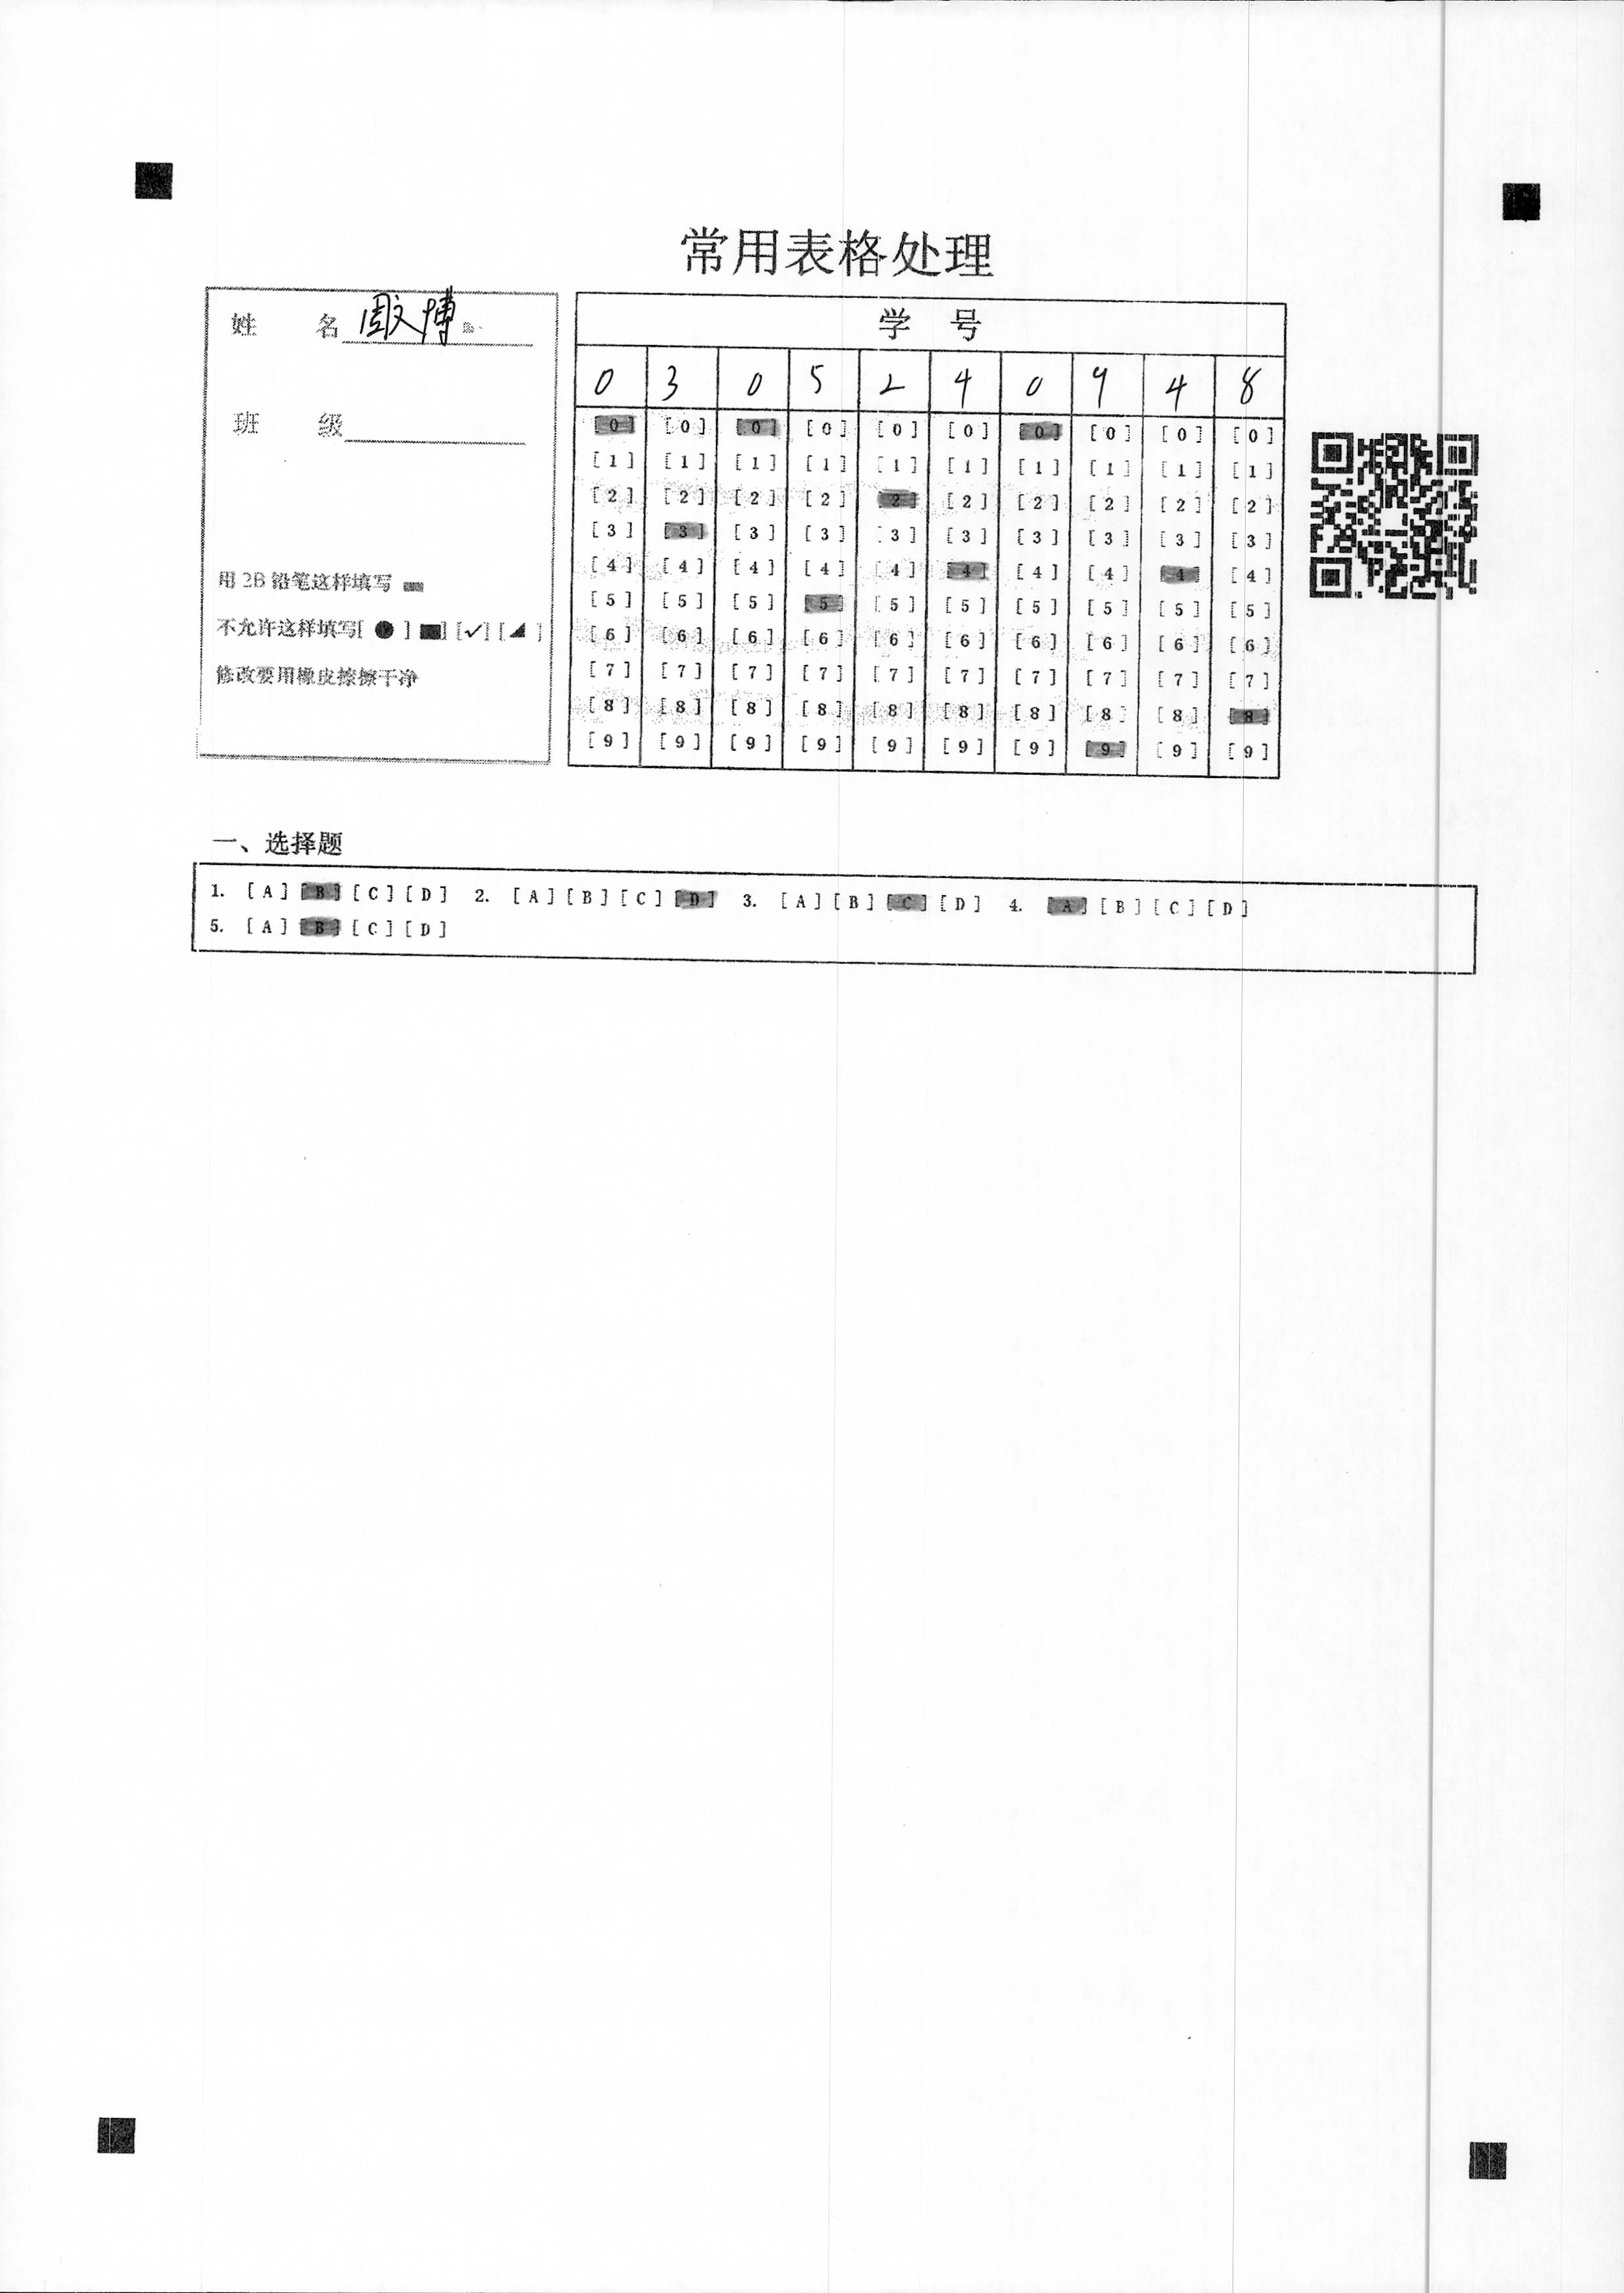 常用表格处理
姓 名 周文博
班 级
用 2B 铅笔这样填写
不允许这样填写[ ● ] ■] [✓] [◢ ]
修改要用橡皮擦擦干净
学 号
0 3 0 5 2 4 0 9 4 8
[0] [0] [0] [0] [0] [0] [0] [0] [0] [0]
[1] [1] [1] [1] [1] [1] [1] [1] [1] [1]
[2] [2] [2] [2] [2] [2] [2] [2] [2] [2]
[3] [3] [3] [3] [3] [3] [3] [3] [3] [3]
[4] [4] [4] [4] [4] [4] [4] [4] [4] [4]
[5] [5] [5] [5] [5] [5] [5] [5] [5] [5]
[6] [6] [6] [6] [6] [6] [6] [6] [6] [6]
[7] [7] [7] [7] [7] [7] [7] [7] [7] [7]
[8] [8] [8] [8] [8] [8] [8] [8] [8] [8]
[9] [9] [9] [9] [9] [9] [9] [9] [9] [9]
一、选择题
1. [A] [B] [C] [D] 2. [A] [B] [C] [D] 3. [A] [B] [C] [D] 4. [A] [B] [C] [D]
5. [A] [B] [C] [D]